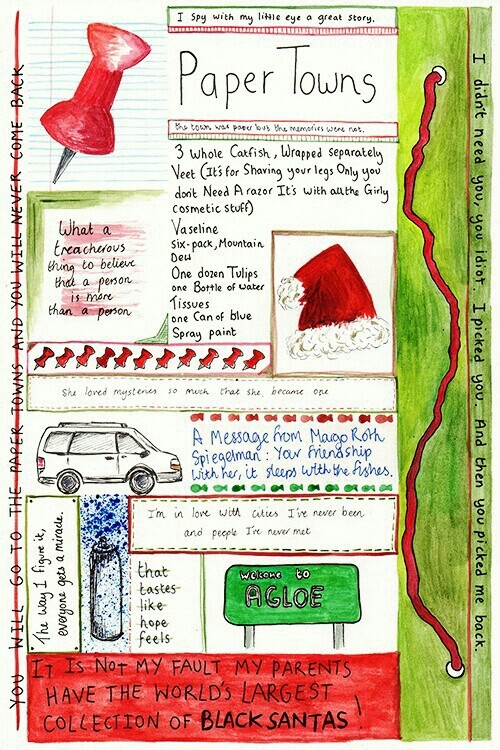 I spy with my little eye a great story.
Paper Towns
the town was paper but the memories were not.
3 Whole Catfish, Wrapped separately
Veet (It's for Shaving your legs Only you
don't Need A razor It's with all the Girly
cosmetic stuff)
Vaseline
Six-pack, Mountain
Dew
One dozen Tulips
one Bottle of water
Tissues
one Can of blue
Spray paint
What a
treacherous
thing to believe
that a person
is more
than a person
She loved mysteries so much that she became one
A Message from Margo Roth
Spiegelman: Your friendship
with her, it sleeps with the fishes.
I'm in love with cities I've never been
and people I've never met
The way I figure it,
everyone gets a miracle.
that
tastes
like
hope
feels
Welcome to
AGLOE
IT IS NOT MY FAULT MY PARENTS
HAVE THE WORLD'S LARGEST
COLLECTION OF BLACK SANTAS!
YOU WILL GO TO THE PAPER TOWNS AND YOU WILL NEVER COME BACK
I didn't need you, you idiot. I picked you. And then you picked me back.